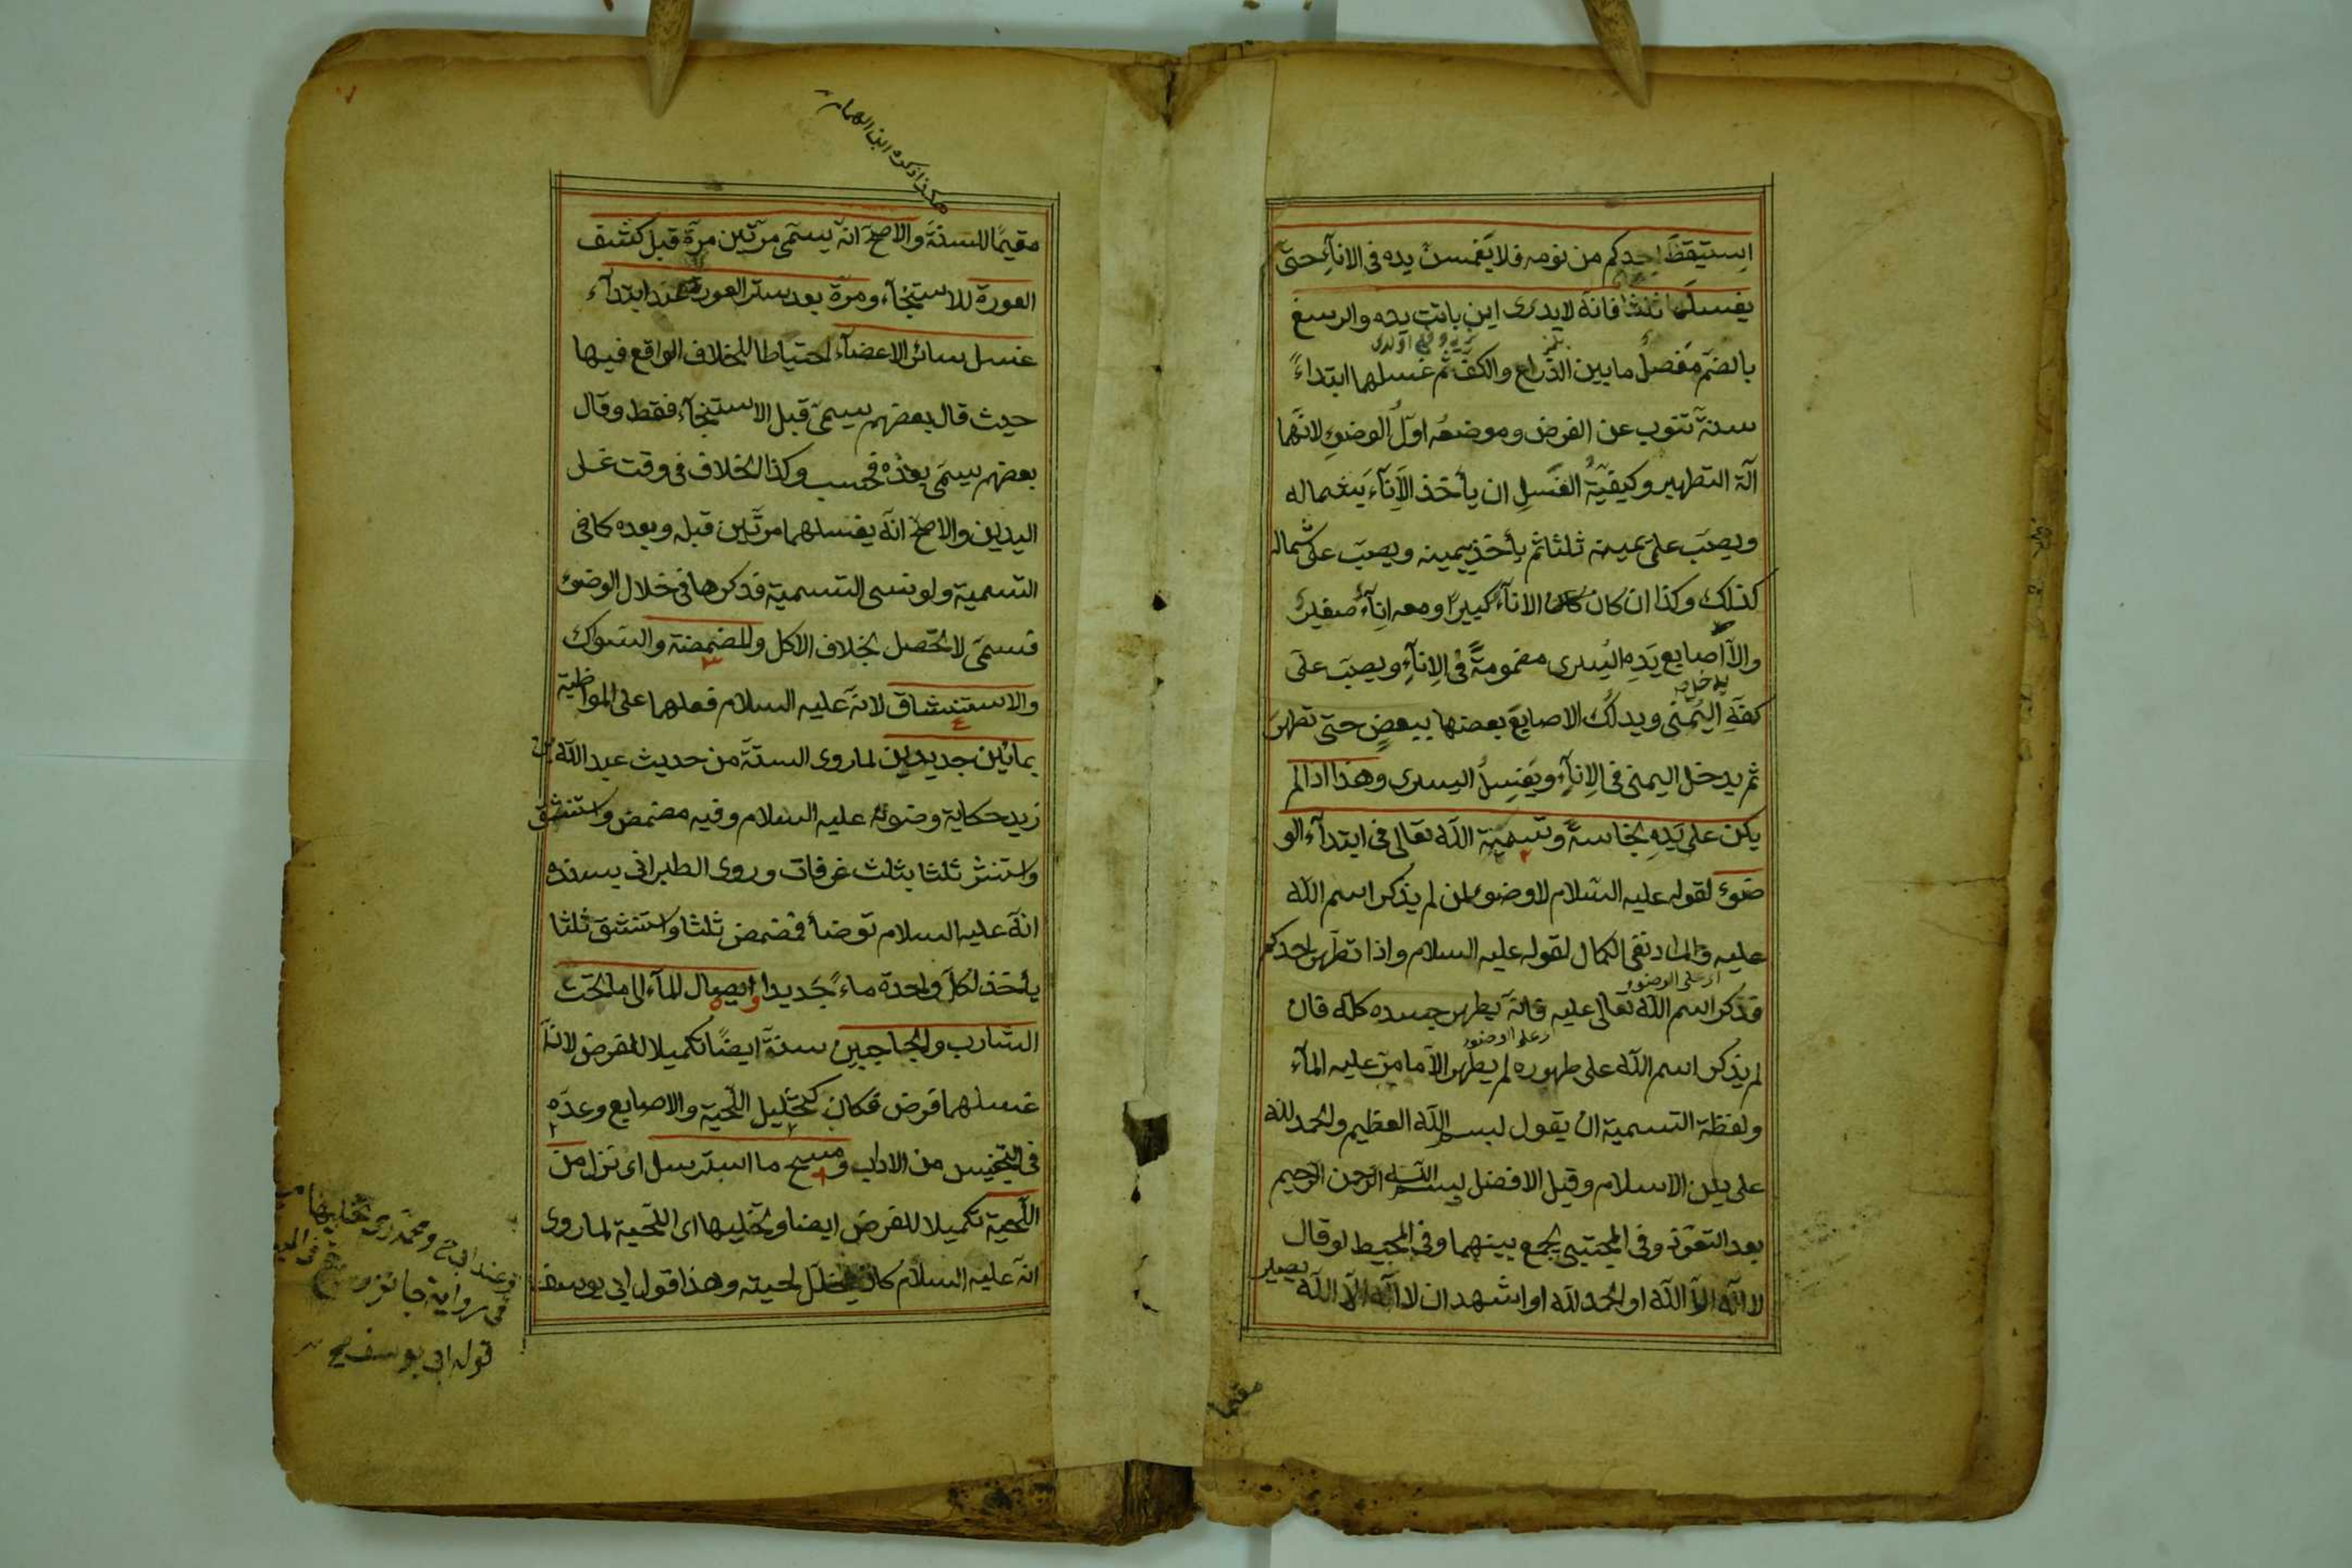 استيقظ احدكم من نومه فلا يغمسن يده فى الانآء حتى
يغسلها ثلثا فانه لا يدرى اين باتت يده والرسغ
بالضم مفصل ما بين الذراع والكف ثم غسلهما ابتداءً
سنة تنوب عن الفرض وموضعه اول الوضوء لانهما
آلة التطهير وكيفية الغسل ان يأخذ الانآء بشماله
ويصب على يمينه ثلثا ثم يأخذ بيمينه ويصب على شماله
كذلك وكذا ان كان الانآء كبيرًا ومعه انآء صغير
والا اصابع يده اليسرى مضمومة فى الانآء ويصب على
يدخل
كفه اليمنى ويدلك الاصابع بعضها ببعض حتى تطهر
ثم يدخل اليمنى فى الانآء ويغسل اليسرى وهذا اذا لم
يكن على يده نجاسة وتسمية الله تعالى فى ابتدآء الو
ضوء لقوله عليه السلام لا وضوء لمن لم يذكر اسم الله
عليه والمراد نفى الكمال لقوله عليه السلام واذا تطهر احدكم
اى على الوضوء
فذكر اسم الله تعالى عليه فانه يطهر جسده كله فان
اى على الوضوء
لم يذكر اسم الله على طهوره لم يطهر الا ما مر عليه المآء
ولفظة التسمية ان يقول بسم الله العظيم والحمد لله
على دين الاسلام وقيل الافضل بسم الله الرحمن الرحيم
بعد التعوذ وفى المجتبى يجمع بينهما وفى المحيط لو قال
لا اله الا الله او الحمد لله او اشهد ان لا اله الا الله يصير
مقيما
هكذا ذكره ابن الهمام
مقيمًا للسنة والاصح انه يسمى مرتين مرة قبل كشف
العورة للاستنجآء ومرة بعد ستر العورة عند ابتدآء
غسل سائر الاعضآء احتياطا للخلاف الواقع فيها
حيث قال بعضهم يسمى قبل الاستنجآء فقط وقال
بعضهم يسمى بعده فحسب وكذا الخلاف فى وقت غسل
اليدين والاصح انه يغسلهما مرتين قبله وبعده كما فى
التسمية ولو نسى التسمية فذكرها فى خلال الوضوء
فسمى لا تحصل بخلاف الاكل والمضمضة والسواك
والاستنشاق لانه عليه السلام فعلهما على المواظبة
بمائين جديدين لما روى الستة من حديث عبد الله بن
زيد حكاية وضوئه عليه السلام وفيه مضمض واستنشق
واستنثر ثلثا بثلث غرفات وروى الطبرانى بسنده
انه عليه السلام توضأ فمضمض ثلثا واستنشق ثلثا
يأخذ لكل واحدة ماءً جديدا وايصال المآء الى ما تحت
الشارب والحاجبين سنة ايضًا تكميلا للفرض لان
غسلهما فرض فكان كتخليل اللحية والاصابع وعده
فى التجنيس من الاداب ومسح ما استرسل اى نزل من
اللحية تكميلا للفرض ايضا وتخليلها اى اللحية لما روى
انه عليه السلام كان يخلل لحيته وهذا قول ابى يوسف
وعند ابى ح ومحمد رح تخليلها
فى رواية جائز
قول ابى يوسف